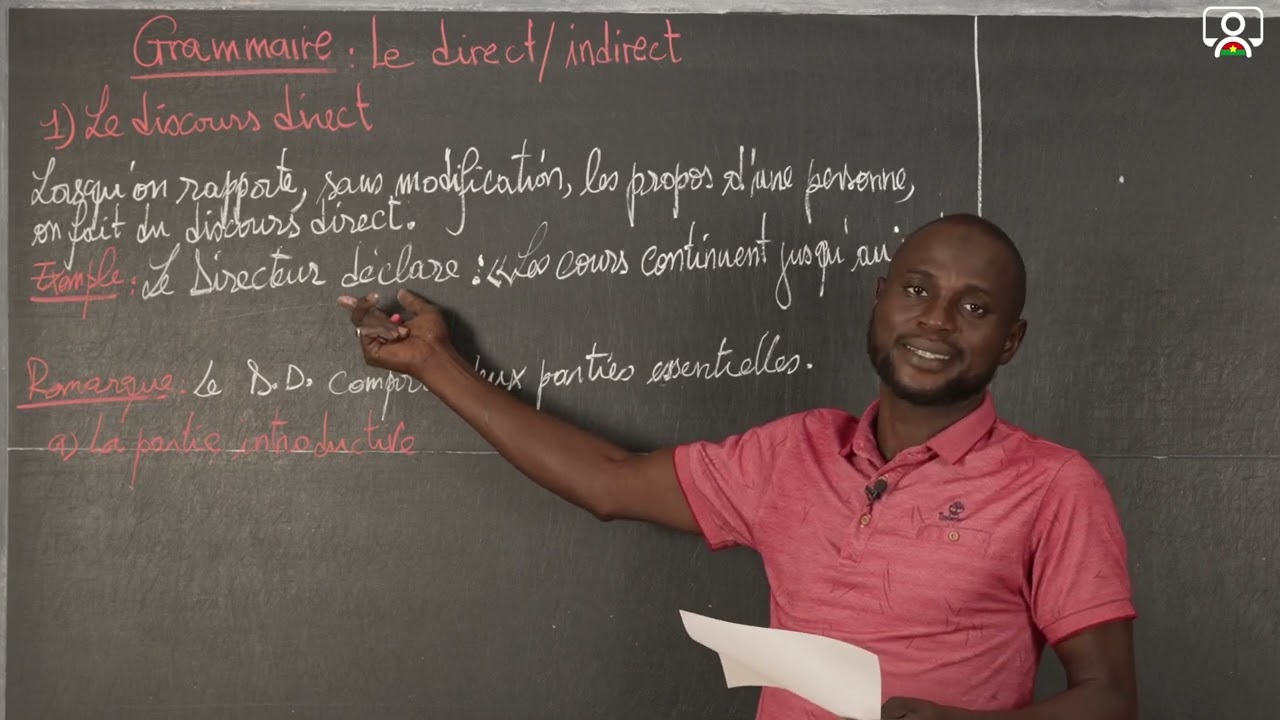 Grammaire : Le direct/indirect
1) Le discours direct
Lorsqu'on rapporte, sans modification, les propos d'une personne,
on fait du discours direct.
Exemple : Le Directeur déclare : « Les cours continuent jusqu'au
Remarque : Le D.D. compr deux parties essentielles.
a) La partie introductive